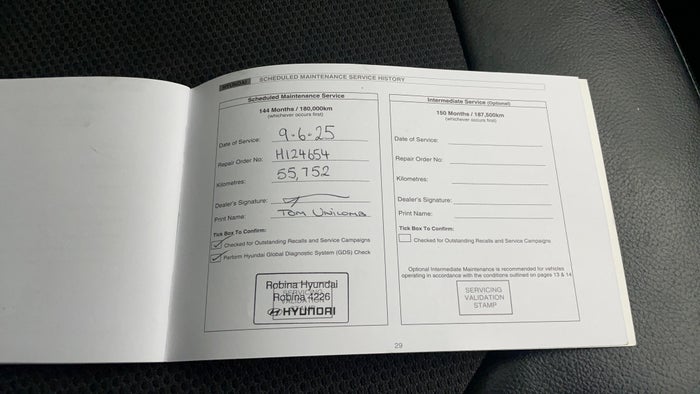 HYUNDAI SCHEDULED MAINTENANCE SERVICE HISTORY
Scheduled Maintenance Service
144 Months / 180,000km
(whichever occurs first)
Date of Service: 9-6-25
Repair Order No: H124654
Kilometres: 55,752
Dealer's Signature:
Print Name: TOM UNICOMB
Tick Box To Confirm:
Checked for Outstanding Recalls and Service Campaigns
Perform Hyundai Global Diagnostic System (GDS) Check
Robina Hyundai
Robina 4226
SERVICING
VALIDATION
HYUNDAI
Intermediate Service (Optional)
150 Months / 187,500km
(whichever occurs first)
Date of Service:
Repair Order No:
Kilometres:
Dealer's Signature:
Print Name:
Tick Box To Confirm:
Checked for Outstanding Recalls and Service Campaigns
Optional Intermediate Maintenance is recommended for vehicles
operating in accordance with the conditions outlined on pages 13 & 14
SERVICING
VALIDATION
STAMP
29